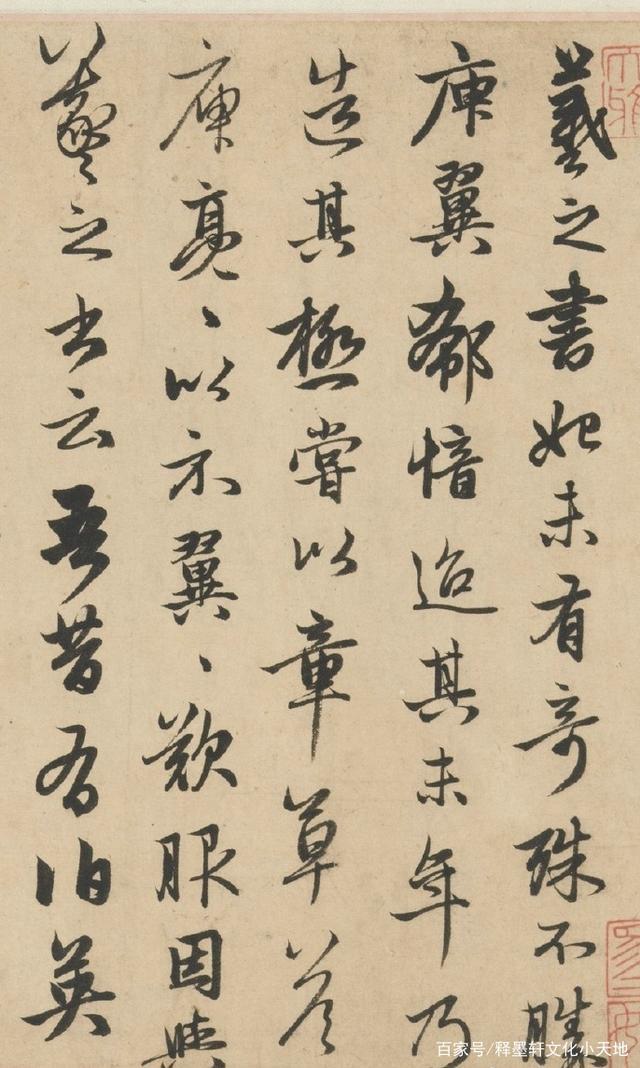 羲之书始未有奇殊不胜
庾翼郗愔迨其末年乃
造其极尝以章草答
庾亮〻以示翼〻叹服因与
羲之书云吾昔有伯英
百家号/释墨轩文化小天地